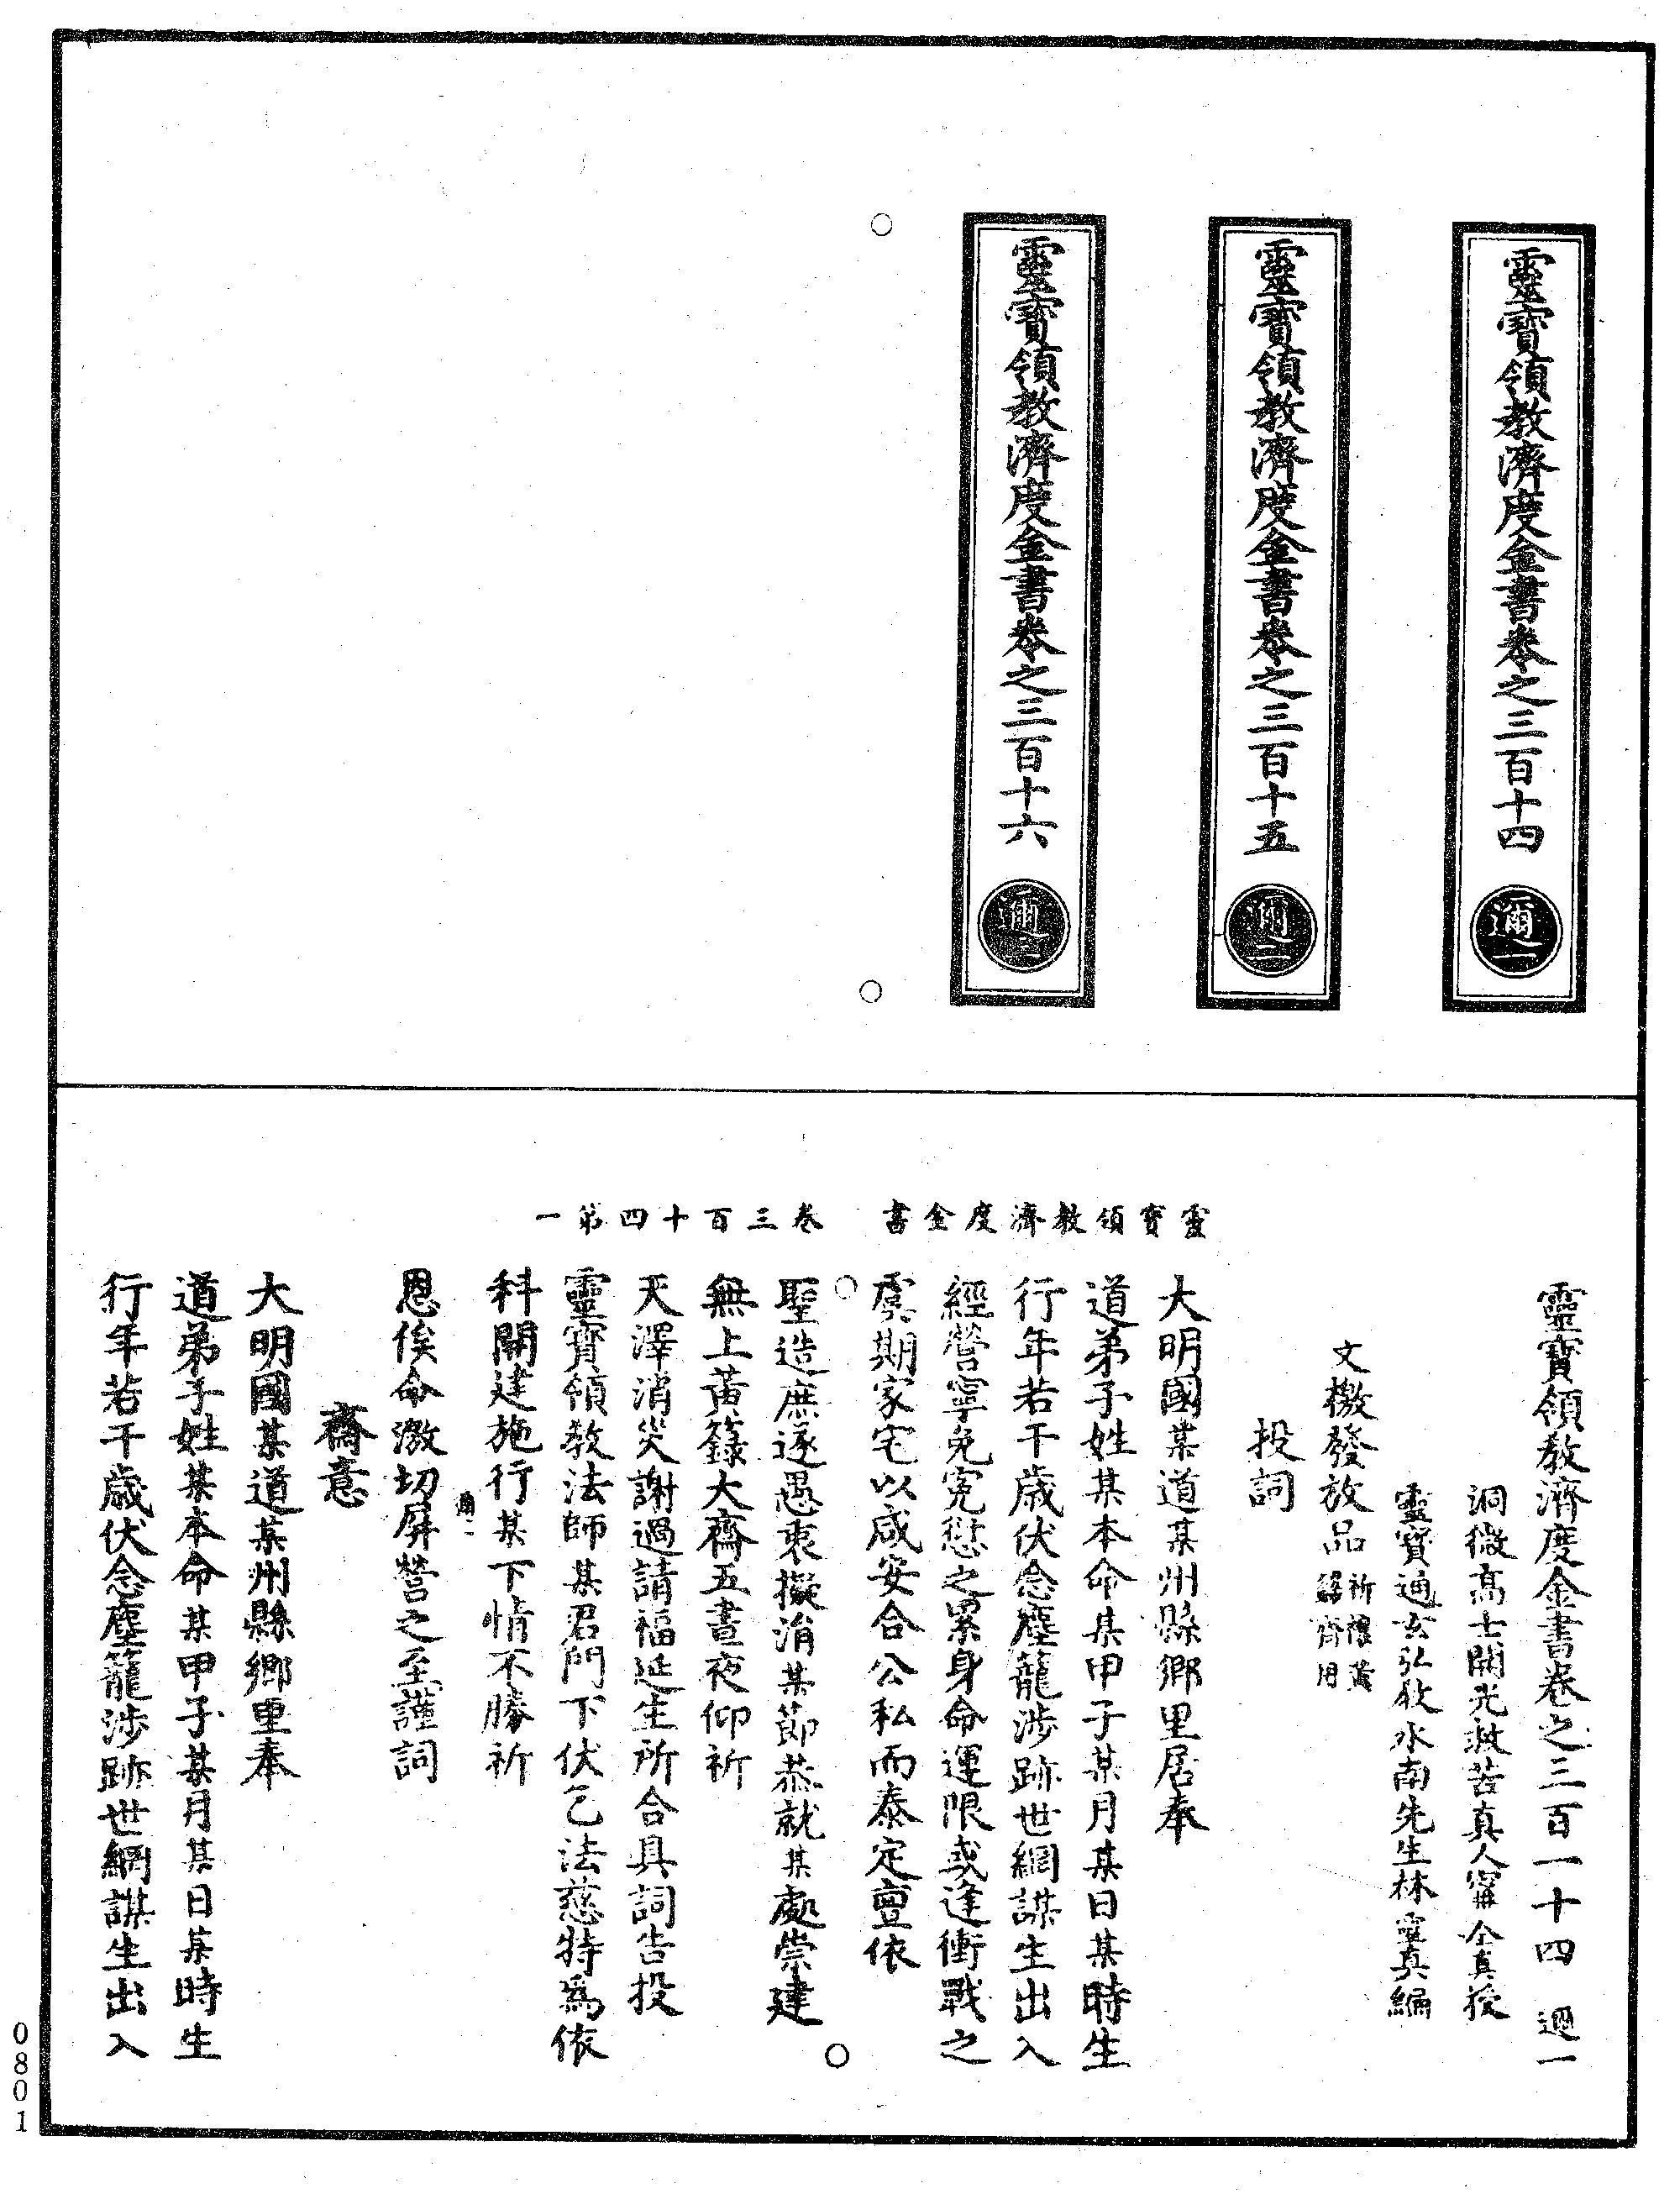 靈寶領教濟度金書卷之三百十四
邇一
靈寶領教濟度金書卷之三百十五
邇二
靈寶領教濟度金書卷之三百十六
邇三
靈寶領教濟度金書卷之三百一十四 邇一
洞微高士開光救苦真人甯全真授
靈寶通玄弘教水南先生林靈真編
文檄發放品 祈禳黃籙齋用
投詞
大明國某道某州縣鄉里居奉
道弟子姓某本命某甲子某月某日某時生
行年若干歲伏念塵籠涉跡世網謀生出入
經營寧免冤愆之累身命運限或逢衝戰之
虞期家宅以咸安合公私而泰定亶依
靈寶領教濟度金書 卷三百十四第一
聖造庶遂愚衷擬涓某節恭就某處崇建
無上黃籙大齋五晝夜仰祈
天澤消災謝過請福延生所合具詞告投
靈寶領教法師某君門下伏乞法慈特為依
科開建施行某下情不勝祈
恩俟命激切屏營之至謹詞
齋意
大明國某道某州縣鄉里奉
道弟子姓某本命某甲子某月某日某時生
行年若干歲伏念塵籠涉跡世網謀生出入
0801